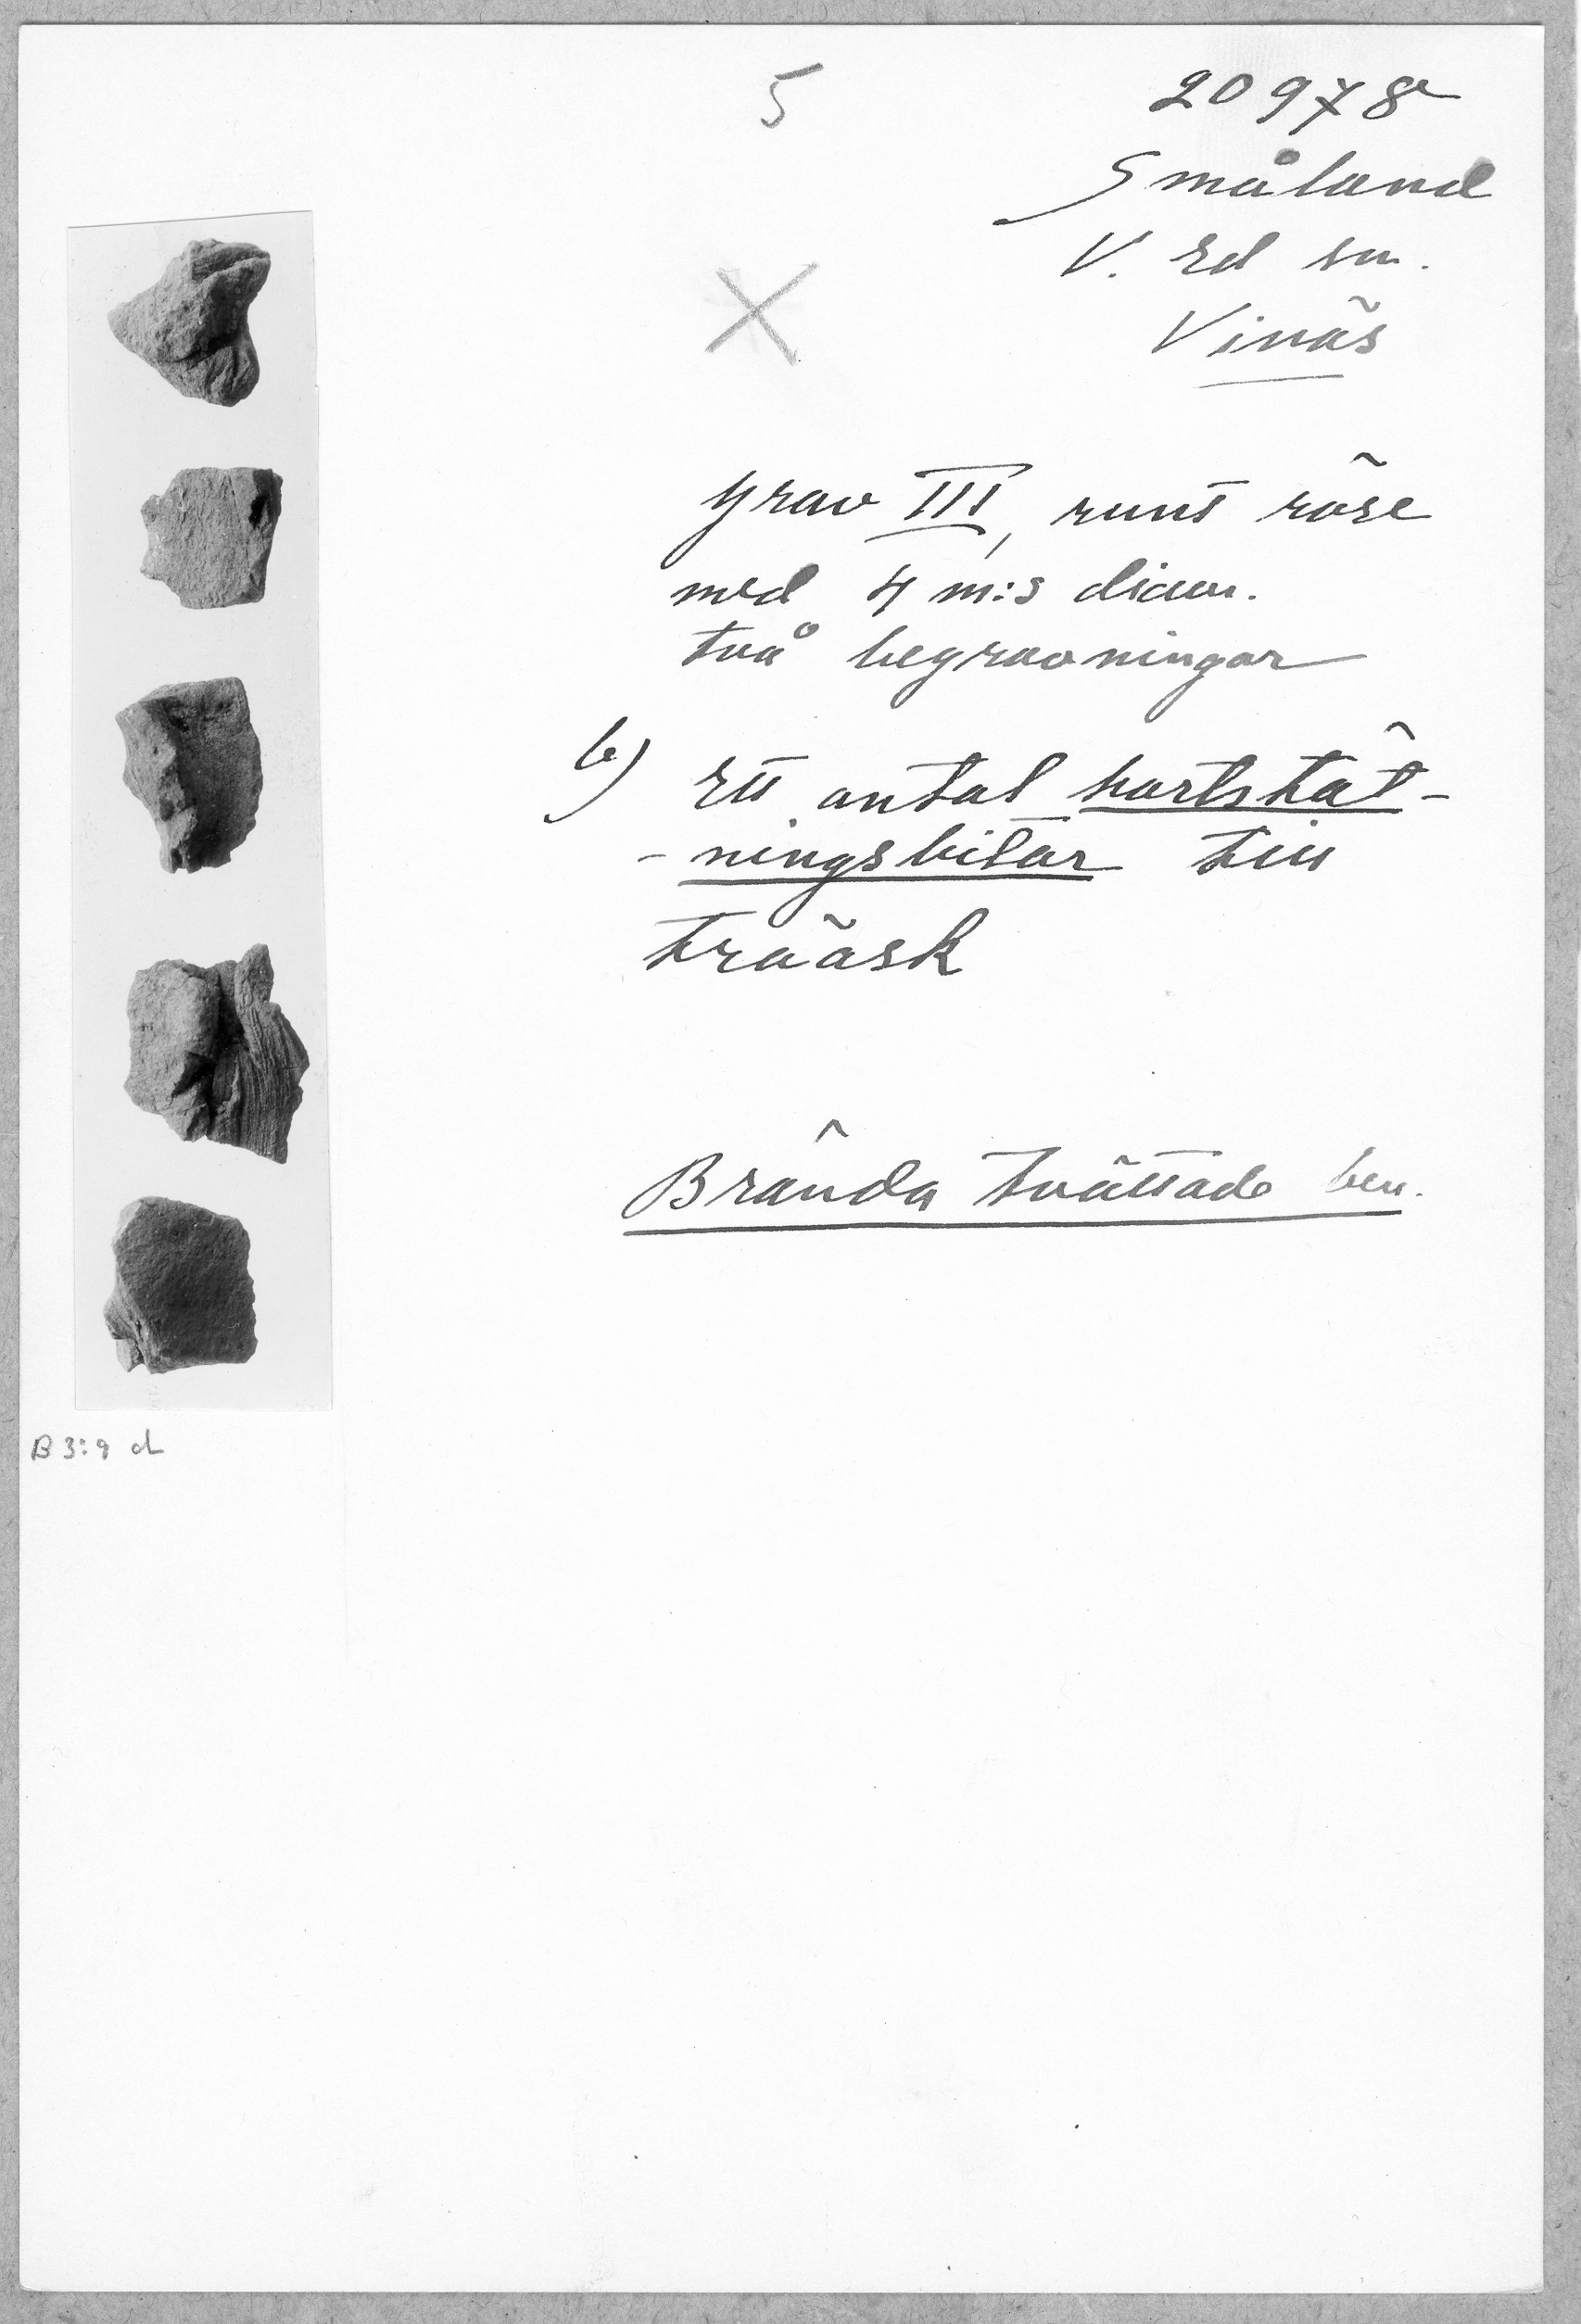 5
20978
Småland
V. Ed sn.
Vinäs
Grav III, runt röse
med 4 m:s diam.
två begravningar
b) Ett antal hartstät-
- ningsbitar till
träask
Brända tvättade ben.
B 3:9 d